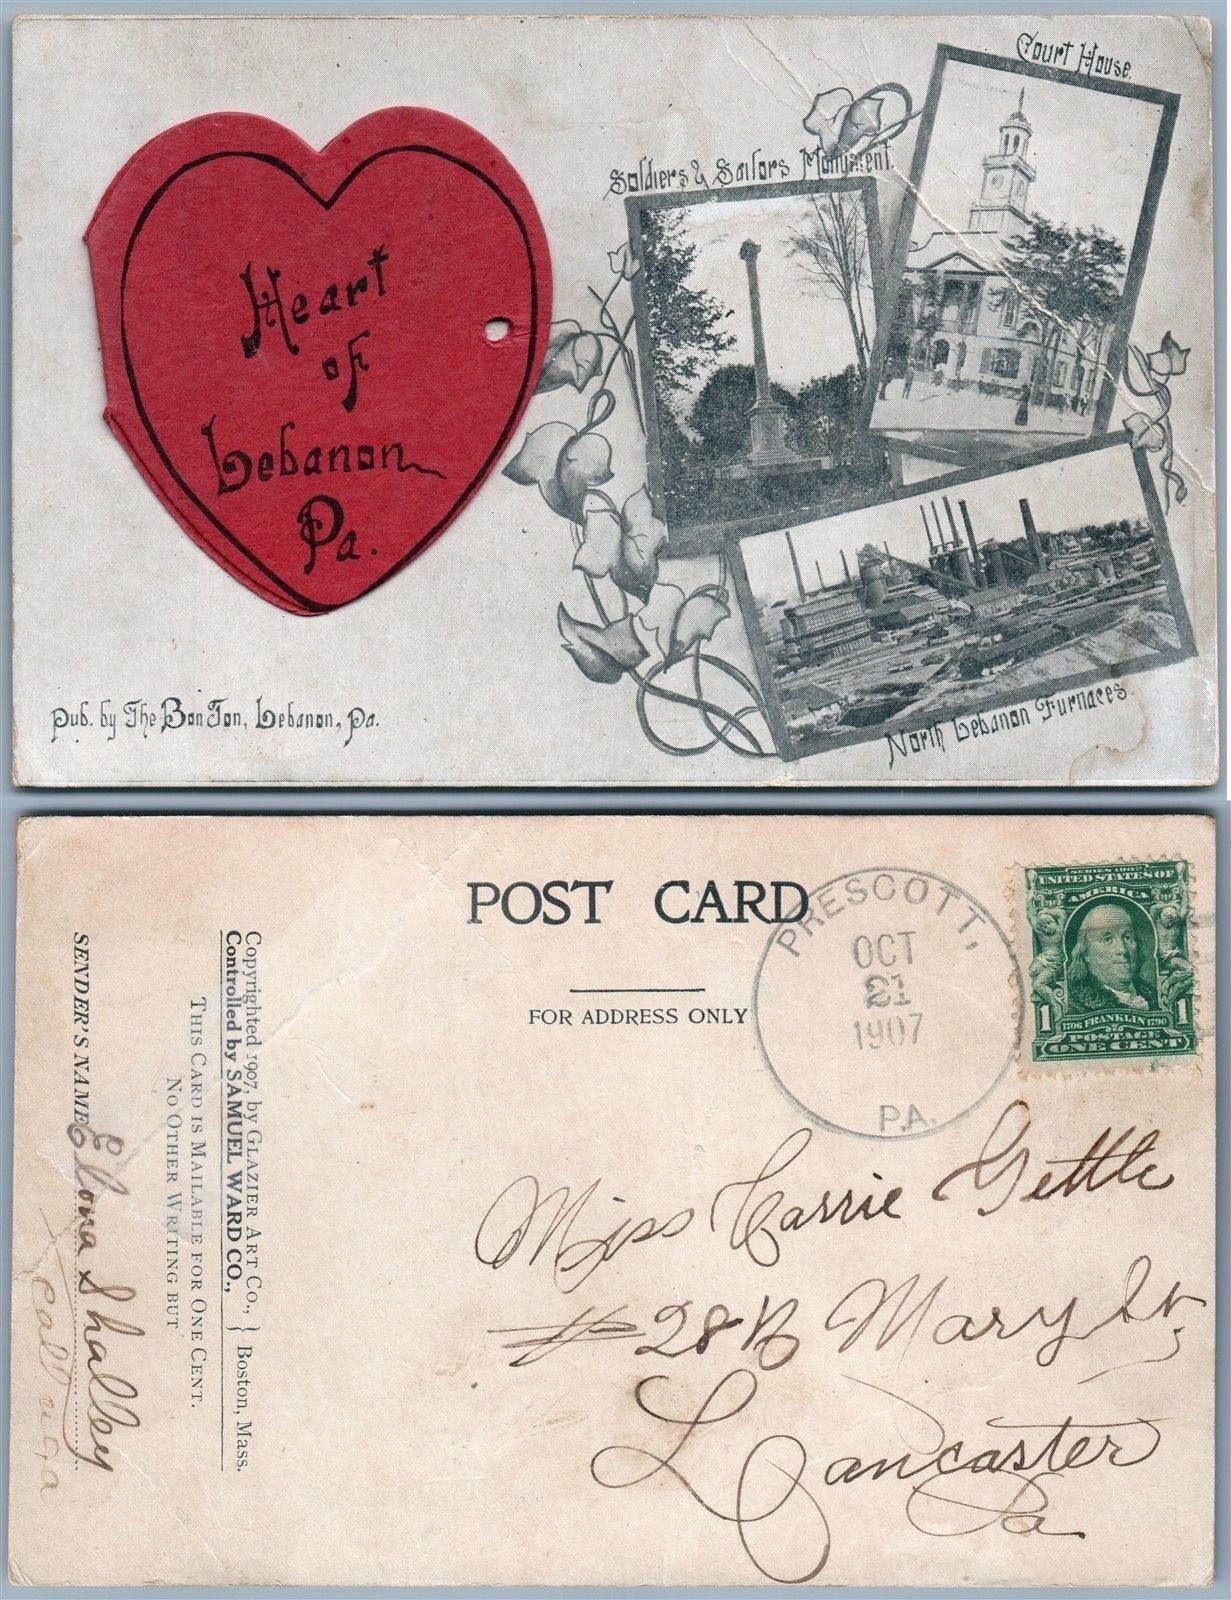 Heart
of
Lebanon
Pa.
Soldiers & Sailors Monument.
Court House.
North Lebanon Furnaces.
Pub. by The Bon Ton, Lebanon, Pa.
POST CARD
FOR ADDRESS ONLY
PRESCOTT,
OCT
21
1907
PA.
SERIES 1902
UNITED STATES OF
AMERICA
1 1706 FRANKLIN 1790 1
POSTAGE
ONE CENT
Copyrighted 1907, by GLAZIER ART CO., } Boston, Mass.
Controlled by SAMUEL WARD CO.,
THIS CARD IS MAILABLE FOR ONE CENT.
NO OTHER WRITING BUT
SENDER'S NAME Elona Shalley
Miss Carrie Gettle
# 28 N Mary St,
Lancaster
Pa.